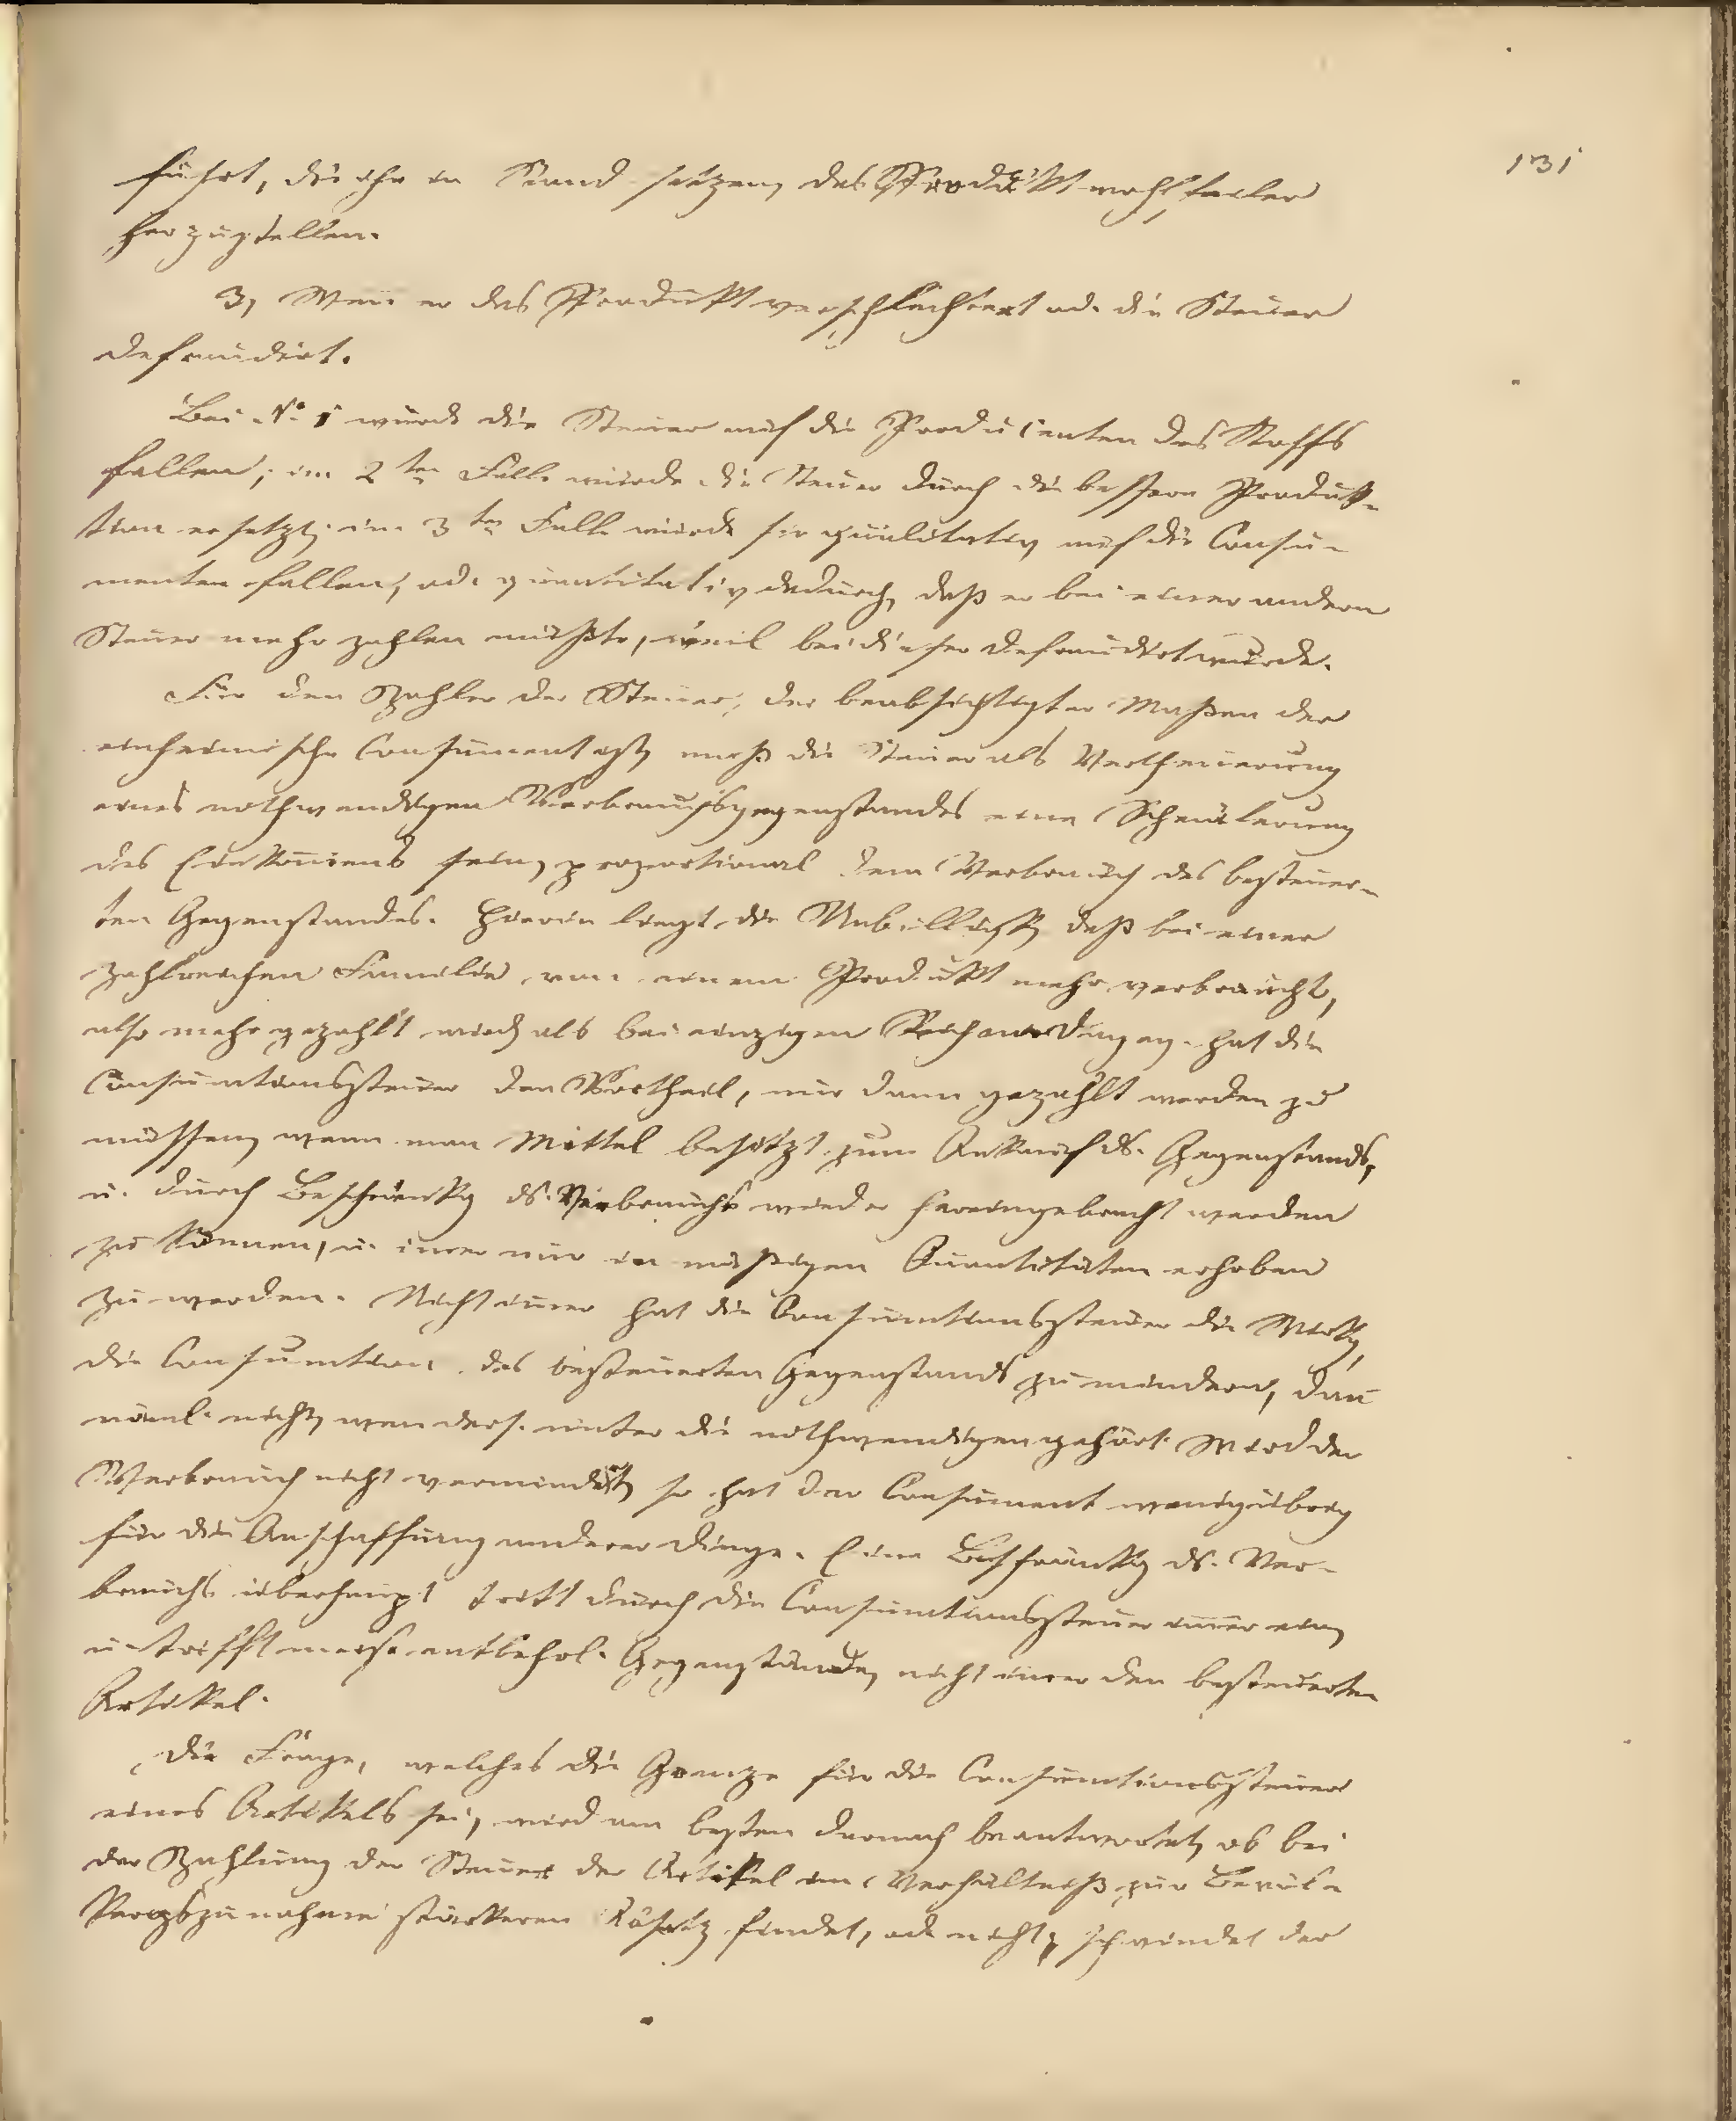 131
führt, die ihn in Stand setzen, das Produkt wohlfeiler
herzustellen.
3, Wenn er das Produkt verschlechtert od. die Steuer
defraudirt.
Bei No 1 würde die Steuer auf die Producenten des Stoffs
fallen; im 2ten Falle würde die Steuer durch die bessere Produk-
tion ersetzt; im 3ten Falle würde sie qualitativ auf die Consu-
menten fallen, od. quantitativ dadurch, daß er bei einer andern
Steuer mehr zahlen müßte, weil bei dieser defraudirt wurde.
Für den Zahler der Steuer, der beabsichtigter Maßen der
einheimische Consument ist, muß die Steuer als Vertheuerung
eines nothwendigen Verbrauchsgegenstandes eine Schmälerung
des Einkommens sein, proportional dem Verbrauch des besteuer-
ten Gegenstandes. Hierin liegt die Unbilligk., daß bei einer
zahlreichen Familie von einem Produkt mehr verbraucht,
also mehr gezahlt wird, als bei einzigen Reichen. Dagegen hat die
Consumtionssteuer den Vortheil, nur dann gezahlt werden zu
müssen, wenn man Mittel besitzt zum Ankauf ds. Gegenstands,
u. durch Beschränkg ds. Verbrauchs wieder hereingebracht werden
zu können, u. immer nur in mäßigen Quantitäten erhoben
zu werden. Nicht immer hat die Consumtionssteuer die Wirkg,
die Consumtion des besteuerten Gegenstands zu mindern, dann
näml. nicht, wenn ders. unter die nothwendigen gehört. Wird der
Verbrauch nicht vermindert, so hat der Consument wenig übrig
für die Anschaffung anderer Dinge. Eine Beschränkg ds. Ver-
brauchs überhaupt tritt durch die Consumtionssteuer immer ein,
u. trifft meist entbehrl. Gegenstände, nicht immer den besteuerten
Artikel.
Die Frage, welches die Grenze für die Consumtionssteuer
eines Artikels sei, wird am besten darnach beantwortet, ob bei
der Zahlung der Steuer der Artikel im Verhältniß zur Bevöl-
kerungszunahme stärkeren Absatz findet, od. nicht; schwindet der